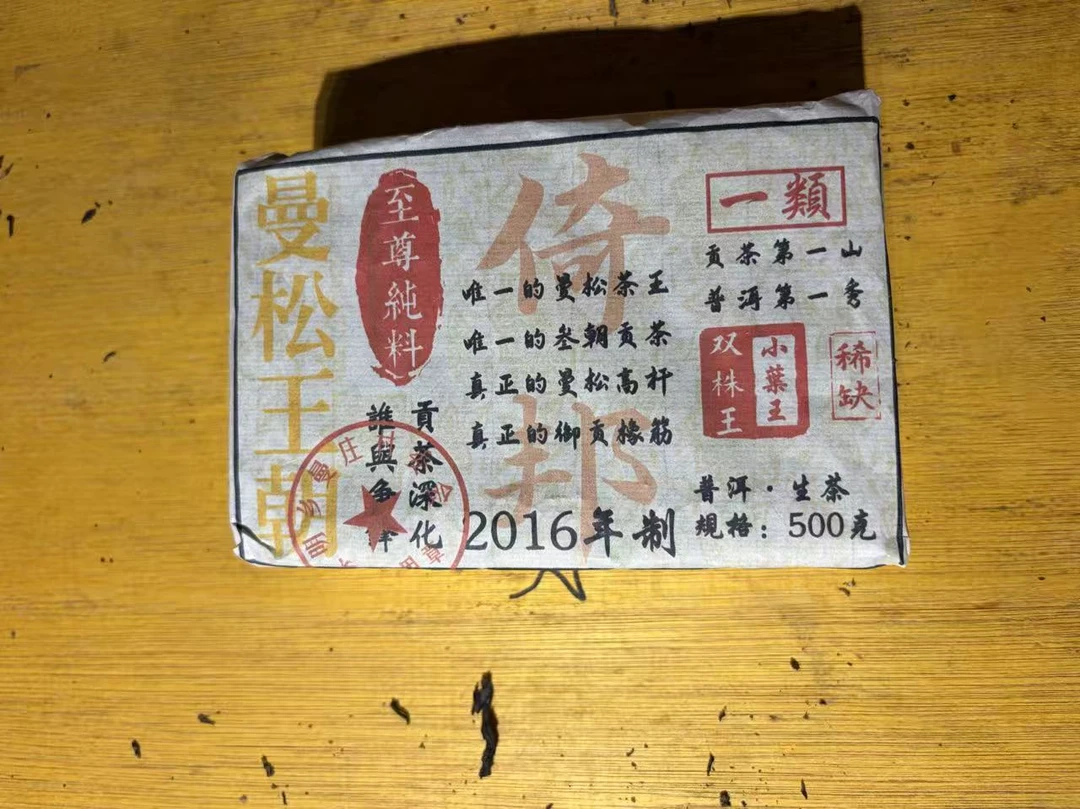 曼松王朝
至尊純料
倚邦
唯一的曼松茶王
唯一的叁朝贡茶
真正的曼松高杆
真正的御贡橡筋
貢茶深化
誰與争
2016年制
一類
贡茶第一山
普洱第一秀
双株王
小葉王
稀缺
普洱·生茶
規格：500克